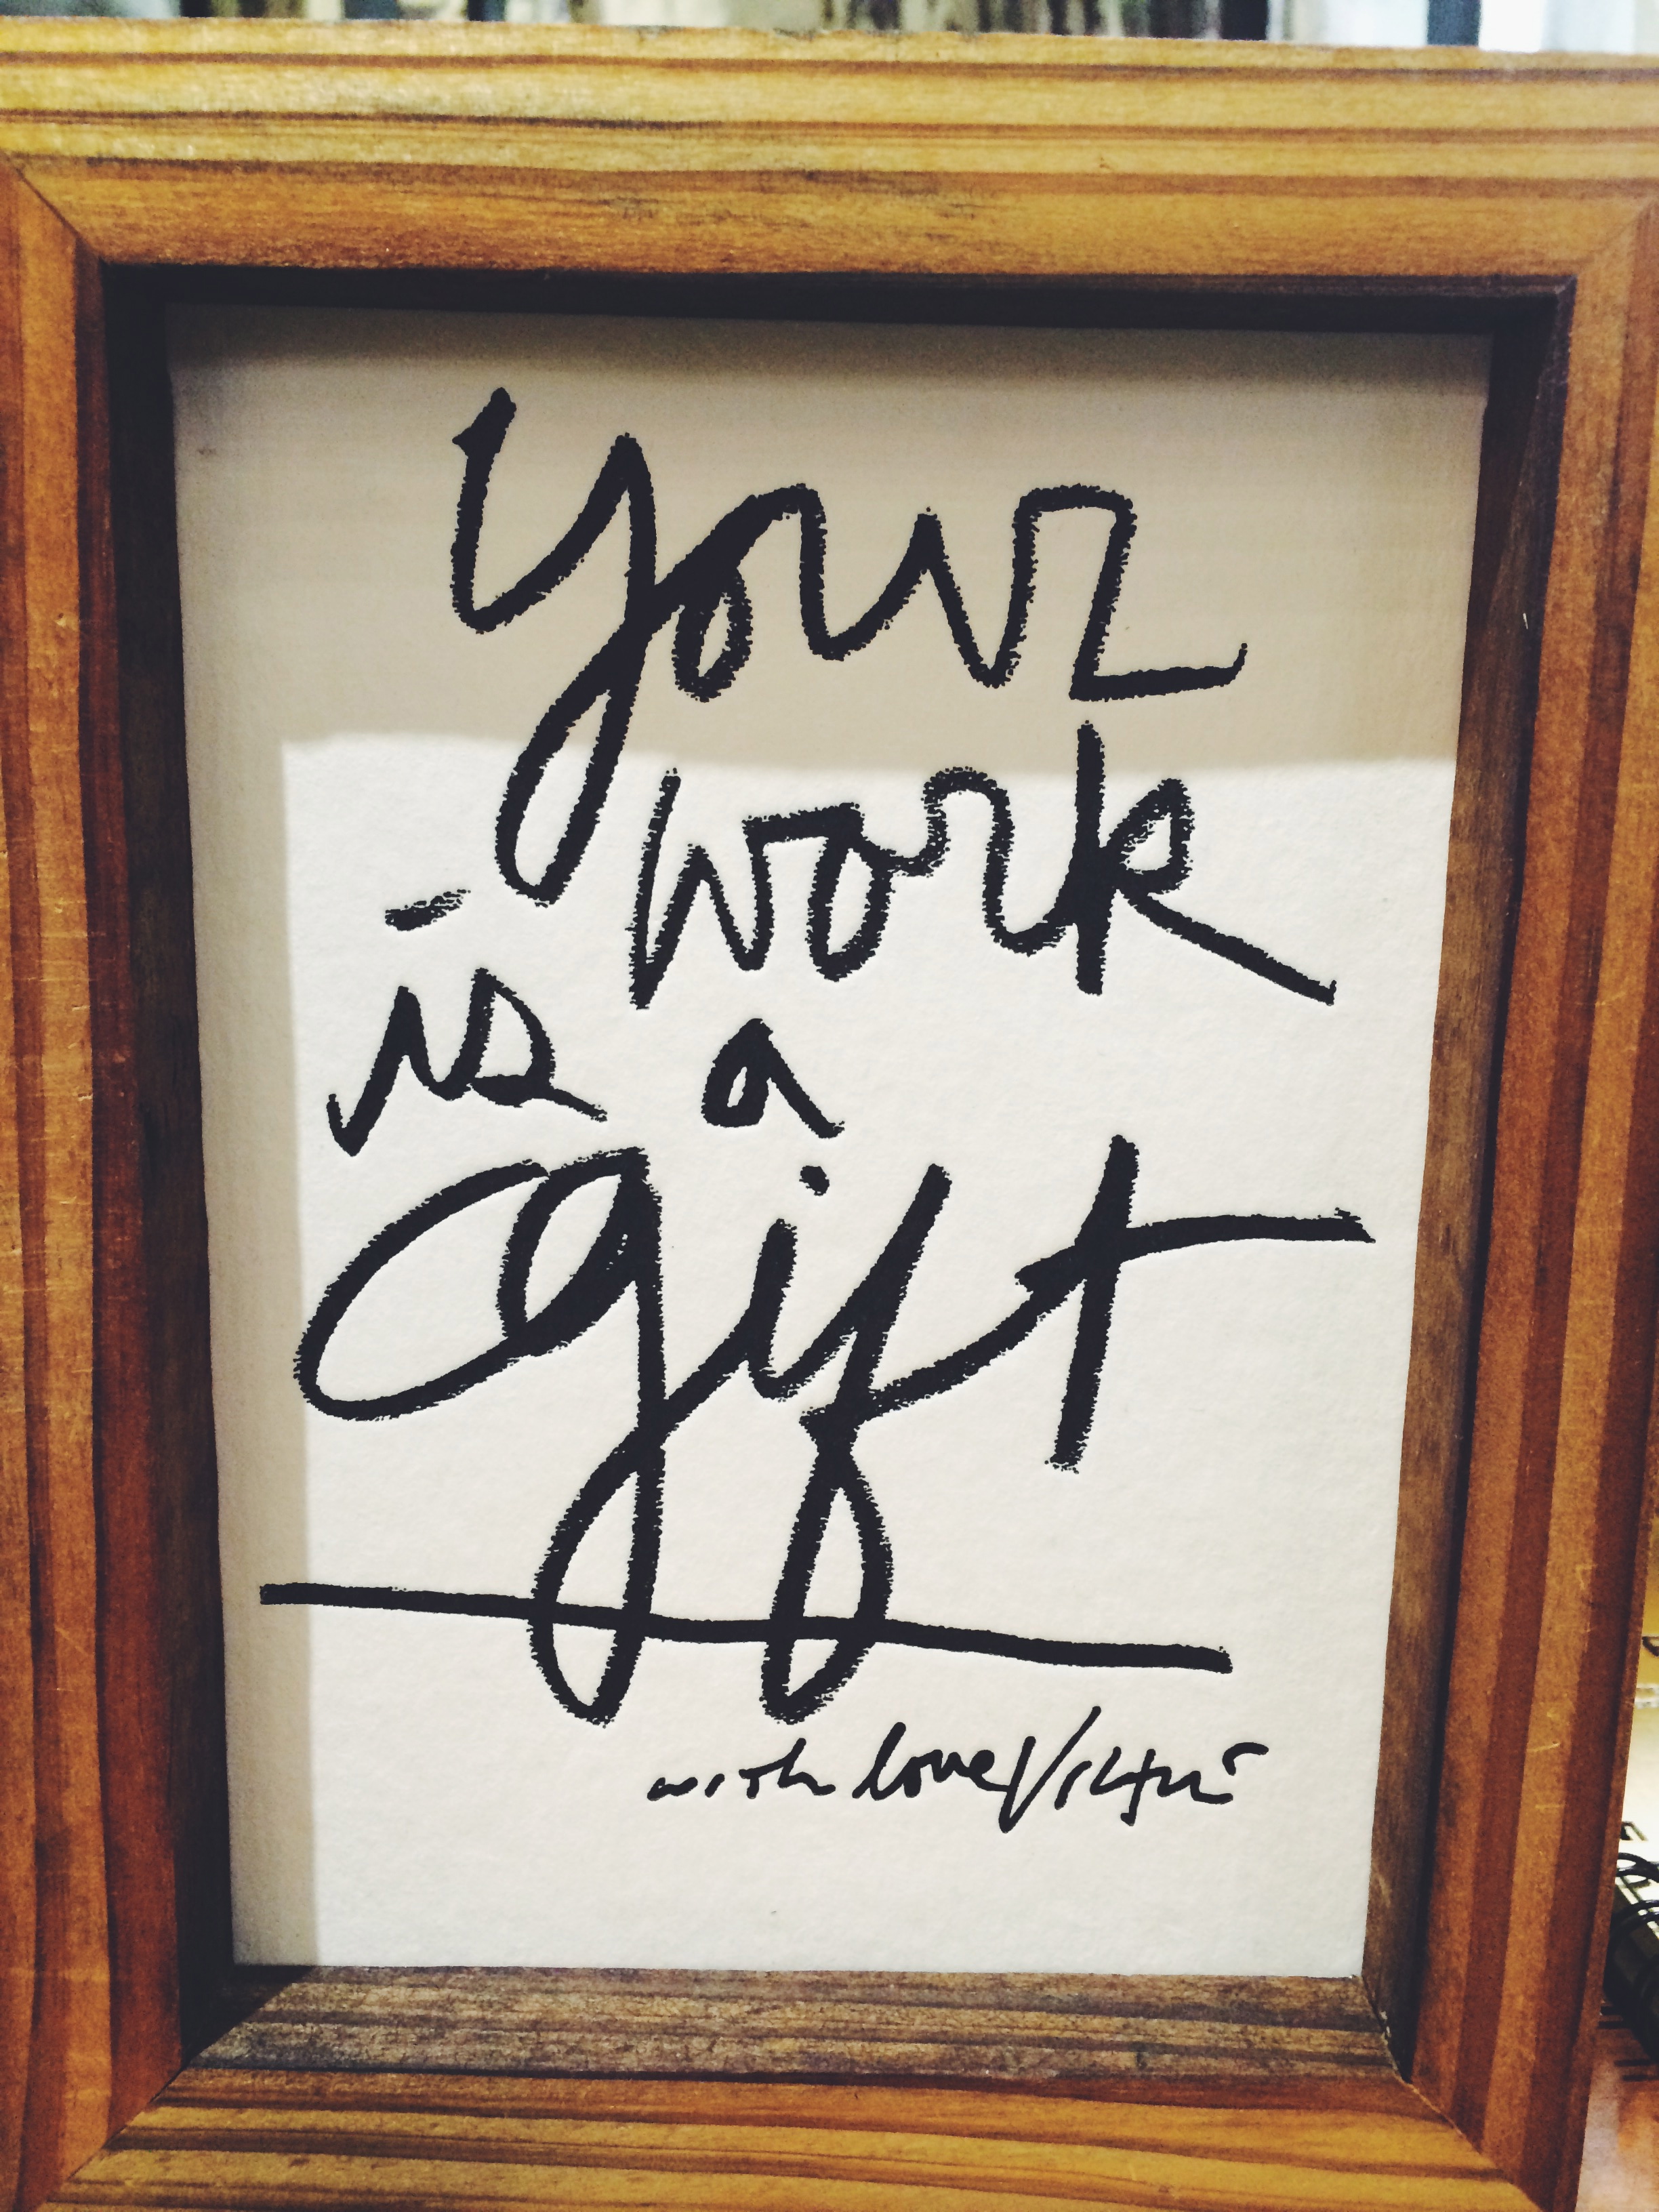 your
work
is a
gift
with love/